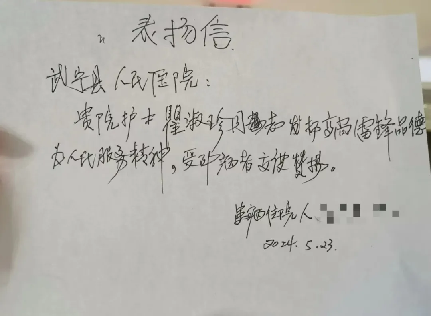 表扬信
武宁县人民医院：
贵院护士瞿淑珍同志发扬高尚雷锋品德
为人民服务精神，受到病者交使赞扬。
住院人
2024.5.23.